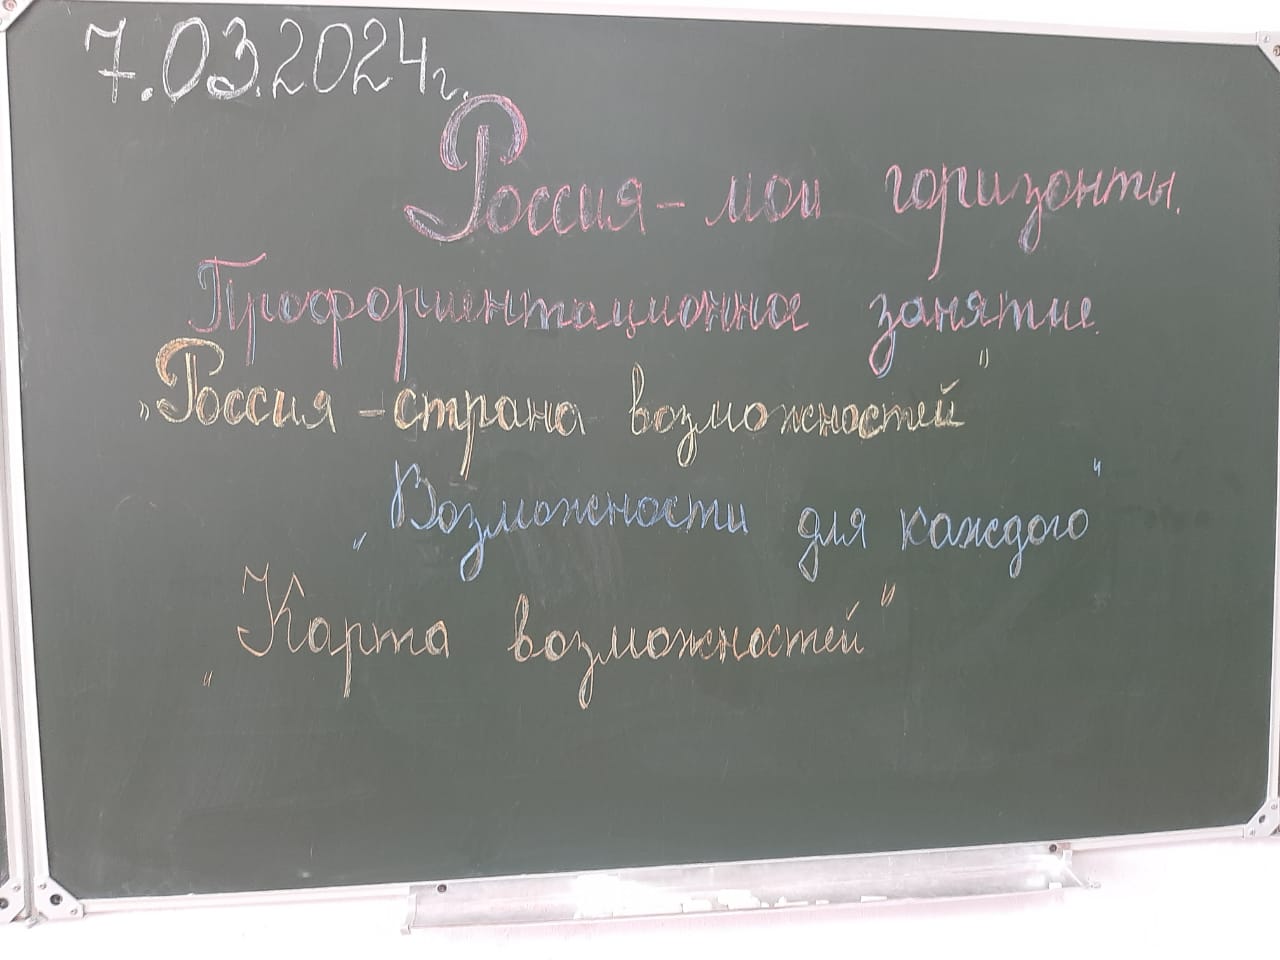 7.03.2024г.
Россия - мои горизонты.
Профориентационное занятие.
„Россия - страна возможностей"
„Возможности для каждого"
„Карта возможностей"